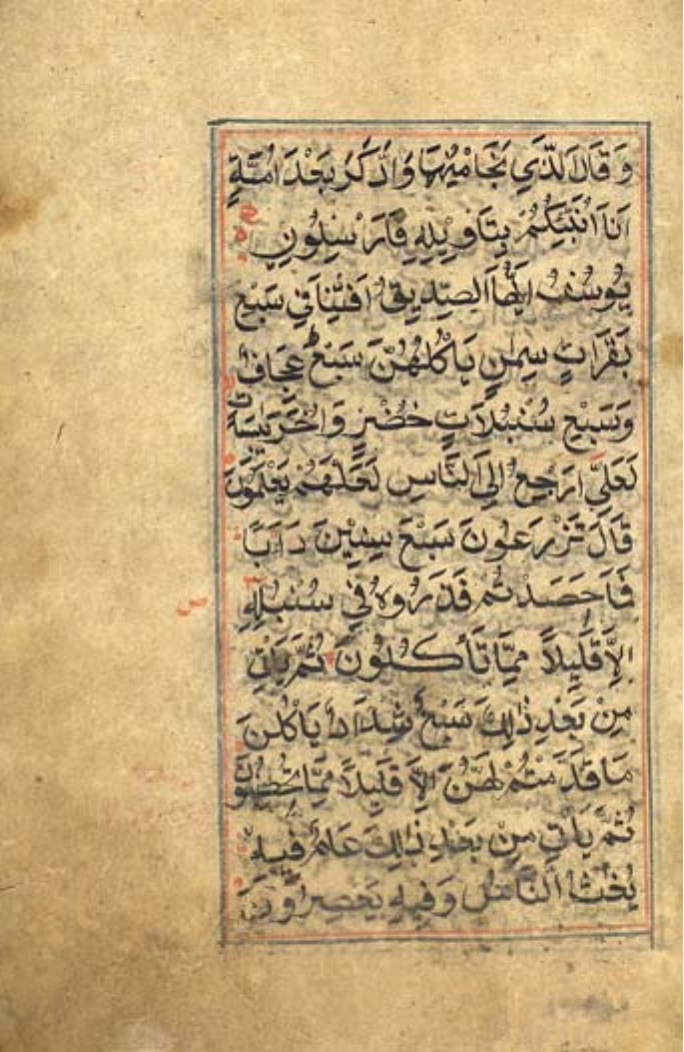 وَ قَالَ الَّذِي نَجَا مِنْهُمَا وَادَّكَرَ بَعْدَ اُمَّةٍ
اَنَا اُنَبِّئُكُمْ بِتَاْوِيْلِهِ فَاَرْسِلُونِ
يُوسُفُ اَيُّهَا الصِّدِيقُ اَفْتِنَا فِي سَبْعِ
بَقَرَاتٍ سِمٰنٍ يَاْكُلُهُنَّ سَبْعٌ عِجَافٌ
وَسَبْعِ سُنْبُلَاتٍ خُضْرٍ وَاُخَرَ يٰبِسٰتٍ
لَعَلِّيْ اَرْجِعُ اِلَى النَّاسِ لَعَلَّهُمْ يَعْلَمُوْنَ
قَالَ تَزْرَعُونَ سَبْعَ سِنِيْنَ دَاَبًا
فَمَا حَصَدْتُمْ فَذَرُوهُ فِي سُنْبُلِهِ
اِلَّا قَلِيْلًا مِمَّا تَاْكُلُوْنَ ثُمَّ يَاْتِي
مِنْ بَعْدِ ذٰلِكَ سَبْعٌ شِدَادٌ يَاْكُلْنَ
مَا قَدَّمْتُمْ لَهُنَّ اِلَّا قَلِيْلًا مِمَّا تُحْصِنُوْنَ
ثُمَّ يَاْتِي مِنْ بَعْدِ ذٰلِكَ عَامٌ فِيْهِ
يُغَاثُ النَّاسُ وَفِيْهِ يَعْصِرُوْنَ